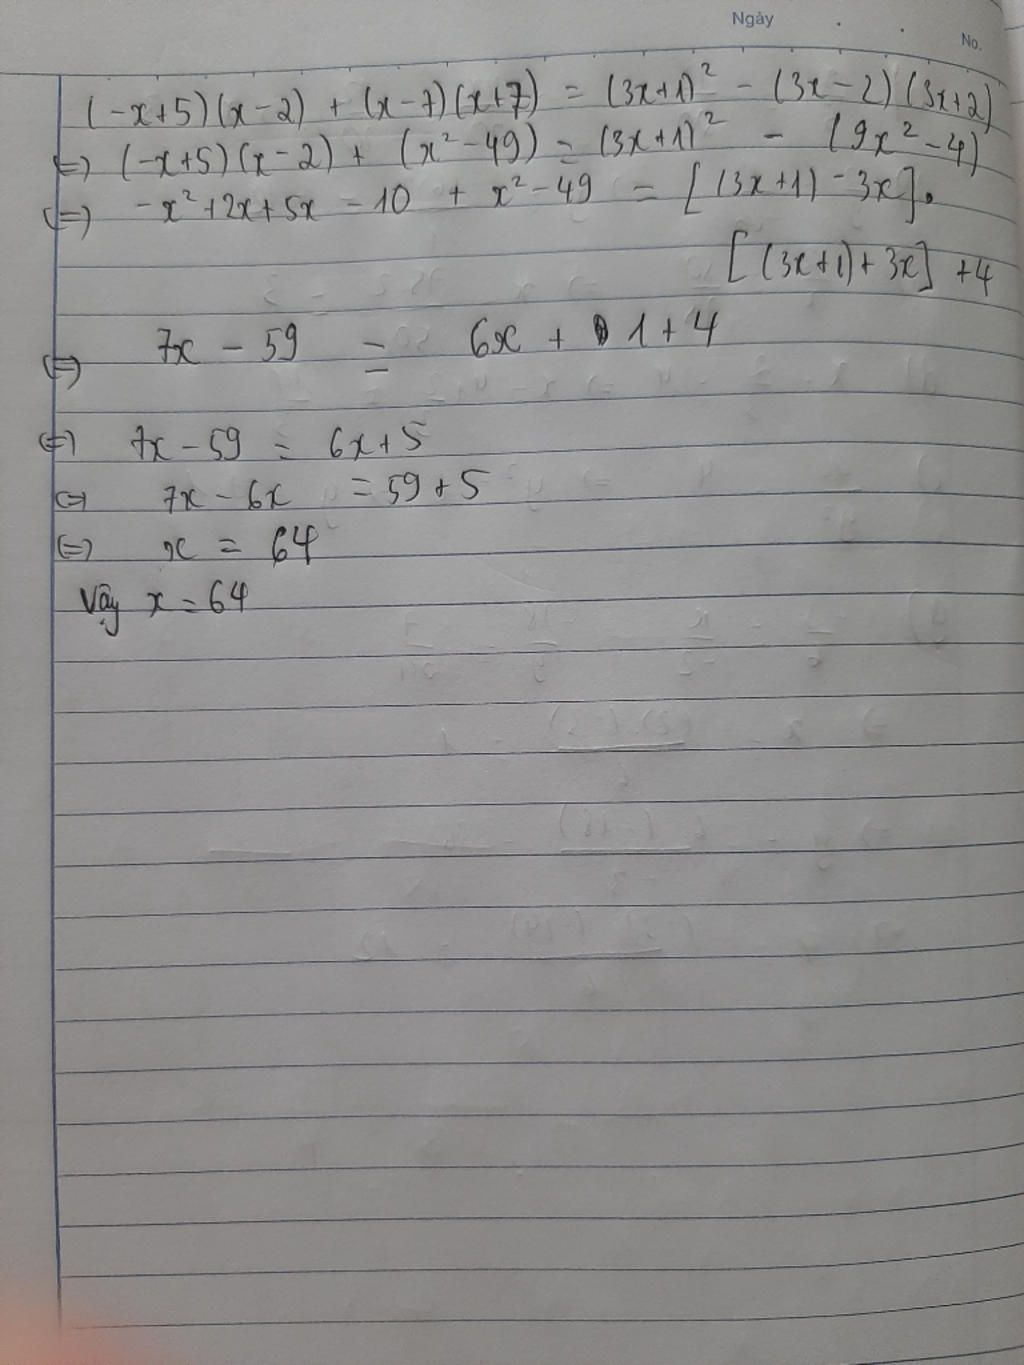 Ngày
No.
(-x+5)(x-2) + (x-7)(x+7) = (3x+1)² - (3x-2)(3x+2)
<=> (-x+5)(x-2) + (x²-49) = (3x+1)² - (9x²-4)
<=> -x²+2x+5x-10 + x²-49 = [(3x+1)-3x].
[(3x+1)+3x] +4
<=> 7x - 59 = 6x + 1+4
<=> 7x-59 = 6x+5
<=> 7x-6x = 59+5
<=> x = 64
Vậy x=64